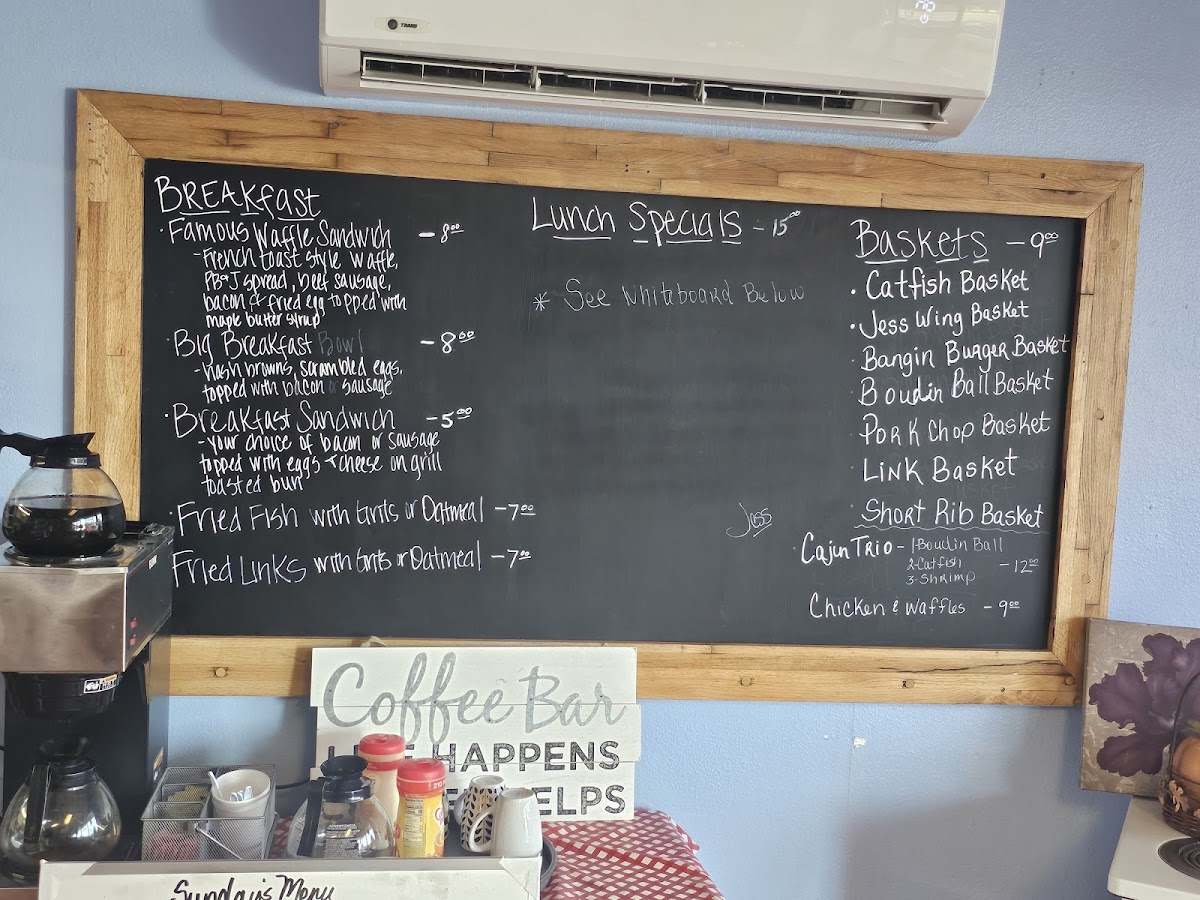 TRANE
BREAKfast
· Famous Waffle Sandwich - 8⁰⁰
- French toast style waffle,
PB&J spread, beef sausage,
bacon & fried egg topped with
maple butter syrup
· Big Breakfast Bowl - 8⁰⁰
- hash browns, scrambled eggs,
topped with bacon or sausage
· Breakfast Sandwich - 5⁰⁰
- your choice of bacon or sausage
topped with eggs + cheese on grill
toasted bun
· Fried Fish with Grits or Oatmeal - 7⁰⁰
· Fried Links with Grits or Oatmeal - 7⁰⁰
Lunch Specials - 15⁰⁰
* See Whiteboard Below
Jess
Baskets - 9⁰⁰
· Catfish Basket
· Jess Wing Basket
· Bangin Burger Basket
· Boudin Ball Basket
· Pork Chop Basket
· Link Basket
· Short Rib Basket
· Cajun Trio - 1 Boudin Ball
2-Catfish - 12⁰⁰
3-Shrimp
Chicken & Waffles - 9⁰⁰
Coffee Bar
HAPPENS
ELPS
Sunday's Menu